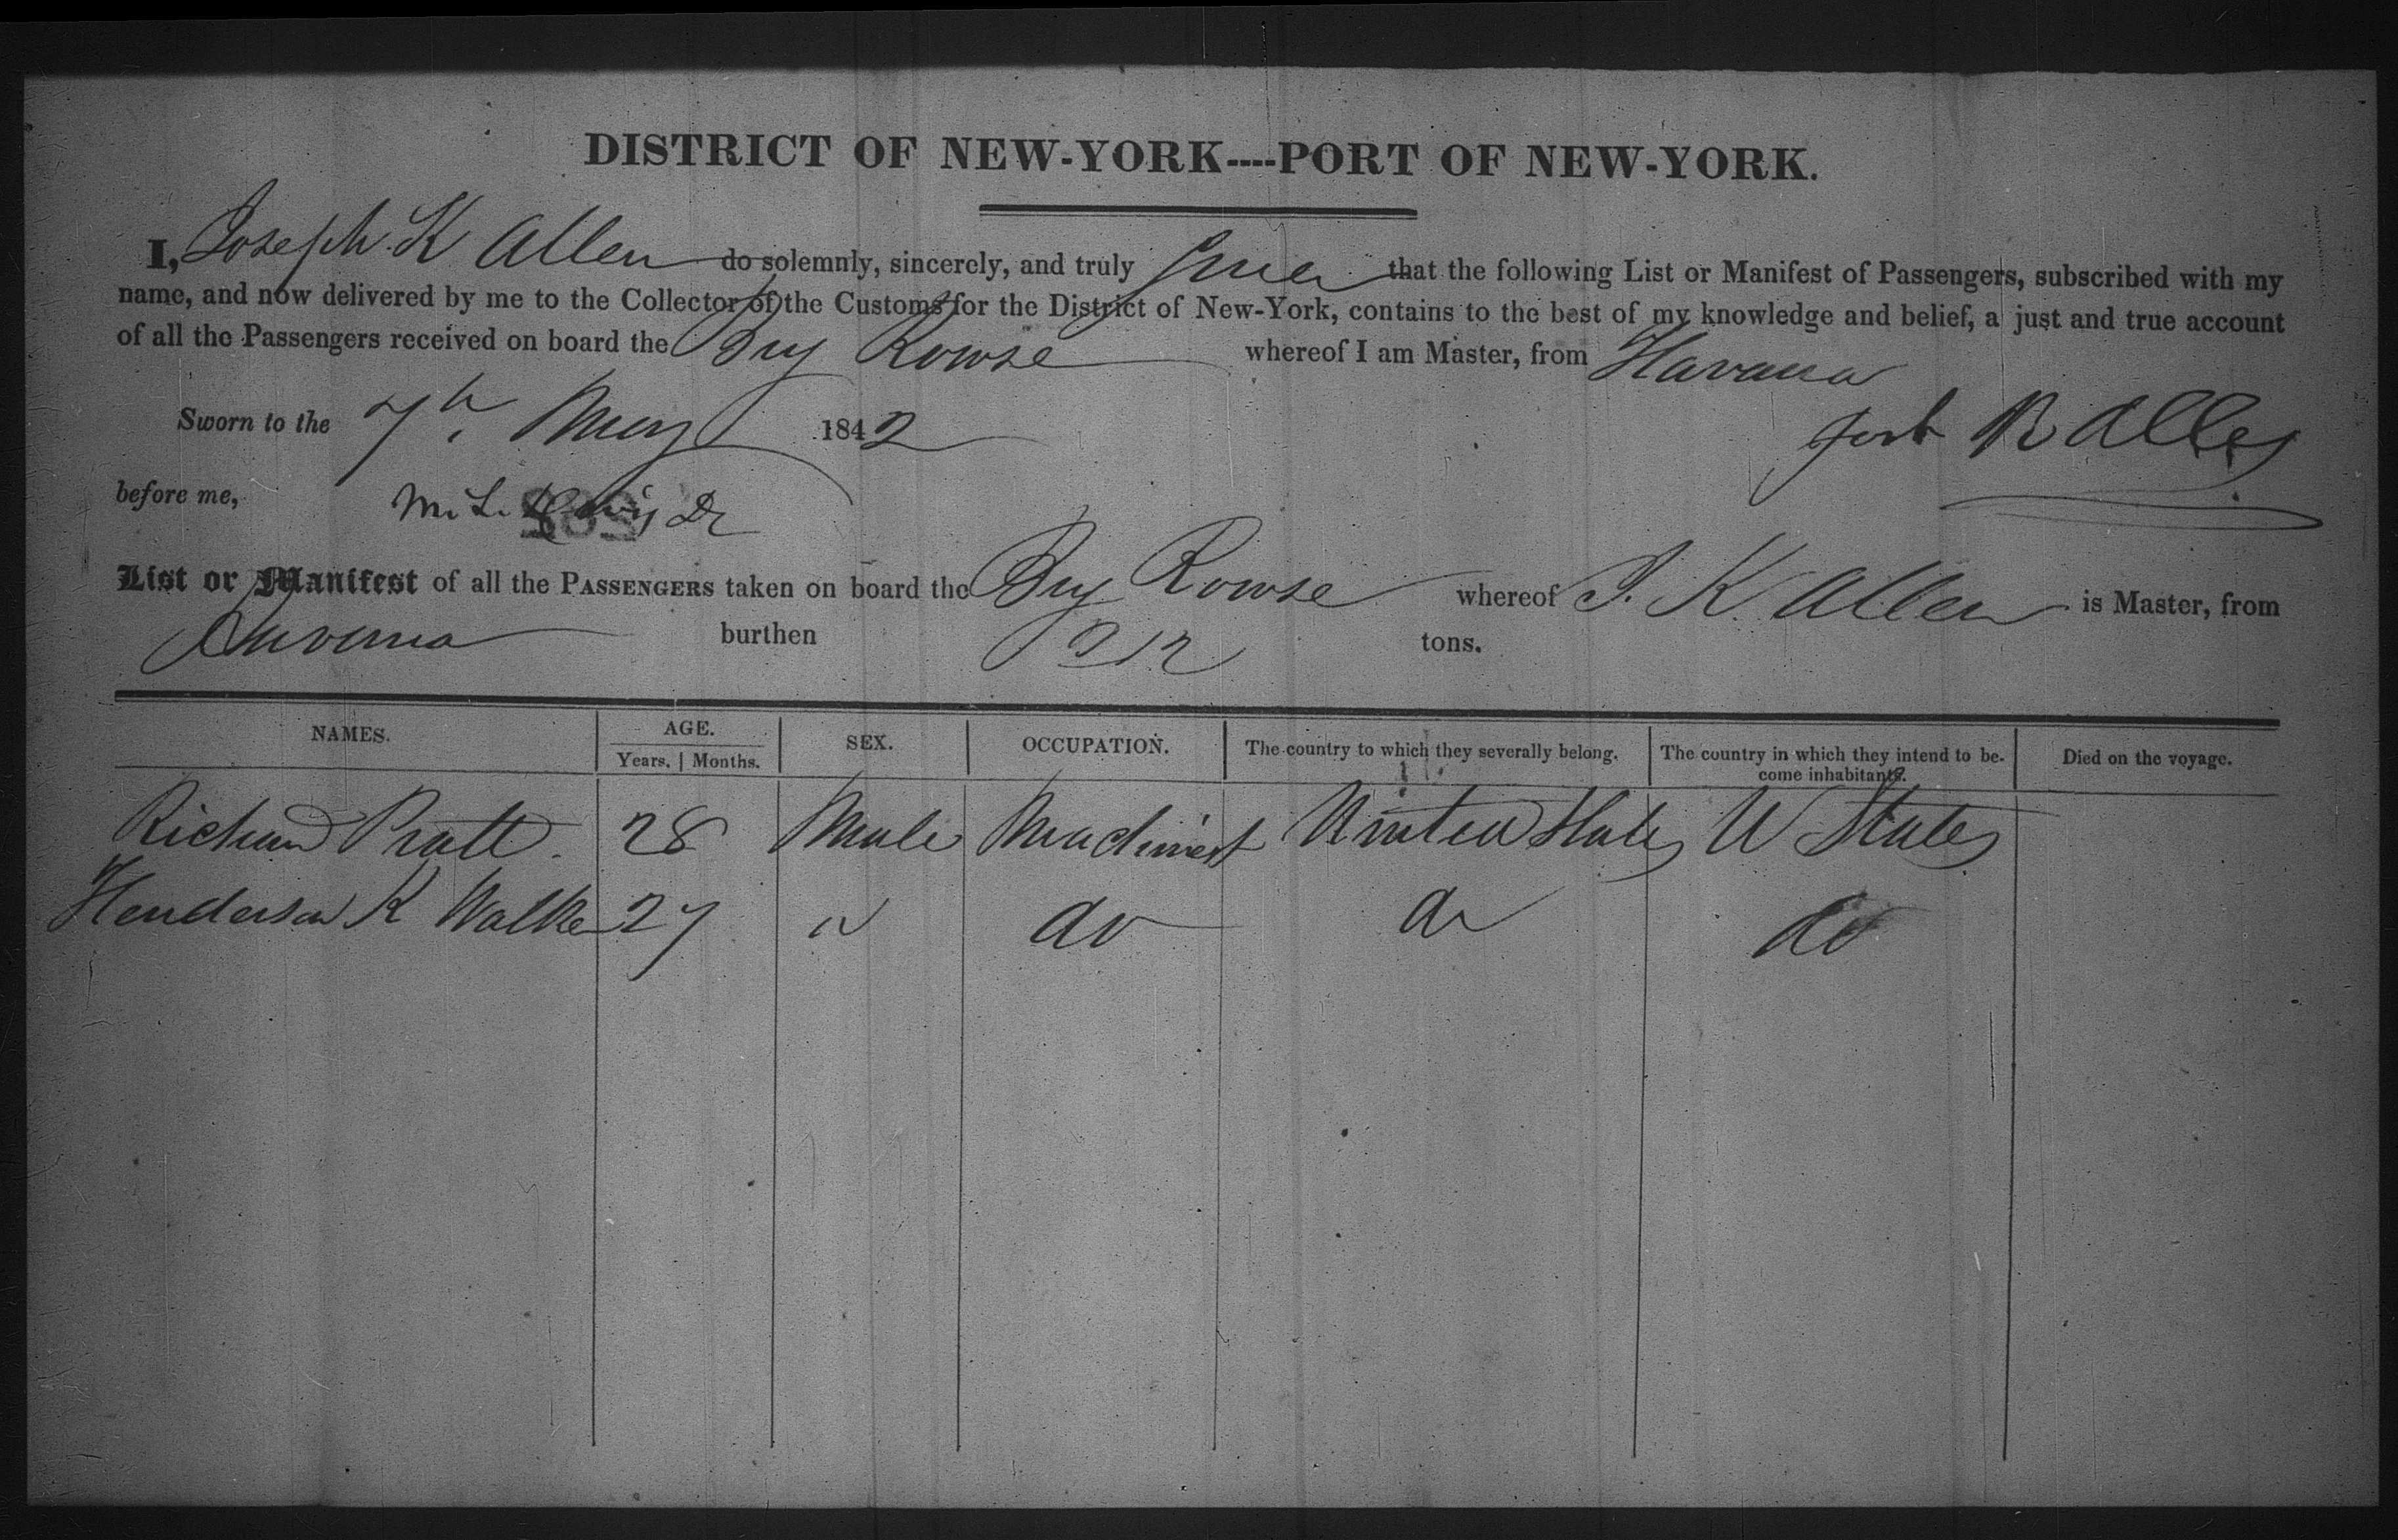 DISTRICT OF NEW-YORK----PORT OF NEW-YORK.
I, Joseph K Allen do solemnly, sincerely, and truly that the following List or Manifest of Passengers, subscribed with my
name, and now delivered by me to the Collector of the Customs for the District of New-York, contains to the best of my knowledge and belief, a just and true account
of all the Passengers received on board the Brig Rowse whereof I am Master, from Havana
Sworn to the 7th May 1842
Allen
before me,
List or Manifest of all the PASSENGERS taken on board the Brig Rowse whereof J. K Allen is Master, from
Havana burthen tons.
NAMES. AGE. SEX. OCCUPATION. The country to which they severally belong. The country in which they intend to be- Died on the voyage.
Years. | Months. come inhabitants.
Richard Pratt 28 Male Machinist United States U States
Henderson K Walker 27 " do do do